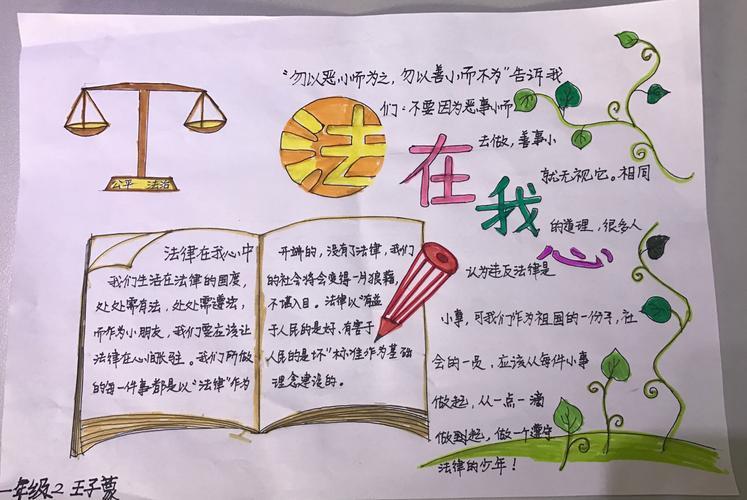 "勿以恶小师为之，勿以善小而不为"告诉我
们：不要因为恶事小师
去做，善事小
就无视它。相同
的道理，很多人
认为违反法律是
小事，可我们作为祖国的一份子，社
会的一员，应该从每件小事
做起，从一点一滴
做到起，做一个遵守
法律的少年！
法
在
我
心
公平 法治
法律在我心中
我们生活在法律的国度，
处处需有法，处处需遵法，
而作为小朋友，我们要应该让
法律在心间张驻。我们所做
的每一件事都是以"法律"作为
开端的，没有了法律，我们
的社会将会变得一片狼藉，
不堪入目。法律以"有益
于人民的是好，有害于
人民的是坏"标准作为基础
理念建设的。
一年级2 王子萱